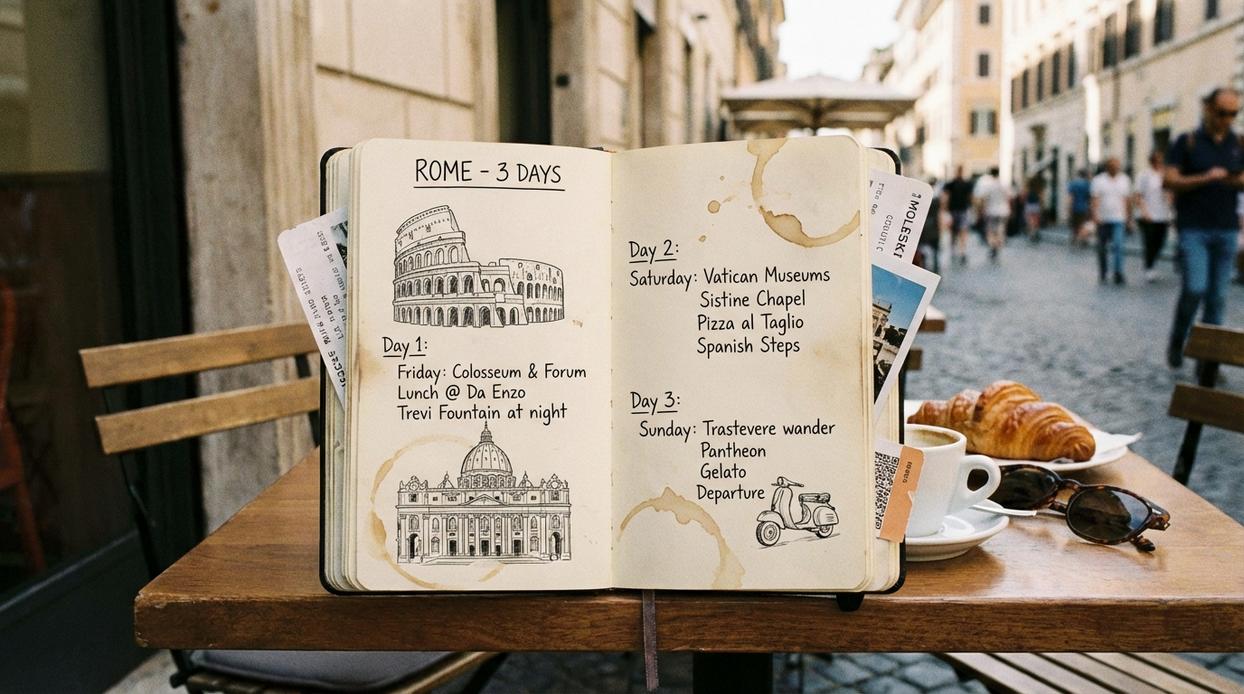 ROME - 3 DAYS
Day 1:
Friday: Colosseum & Forum
Lunch @ Da Enzo
Trevi Fountain at night
Day 2:
Saturday: Vatican Museums
Sistine Chapel
Pizza al Taglio
Spanish Steps
Day 3:
Sunday: Trastevere wander
Pantheon
Gelato
Departure